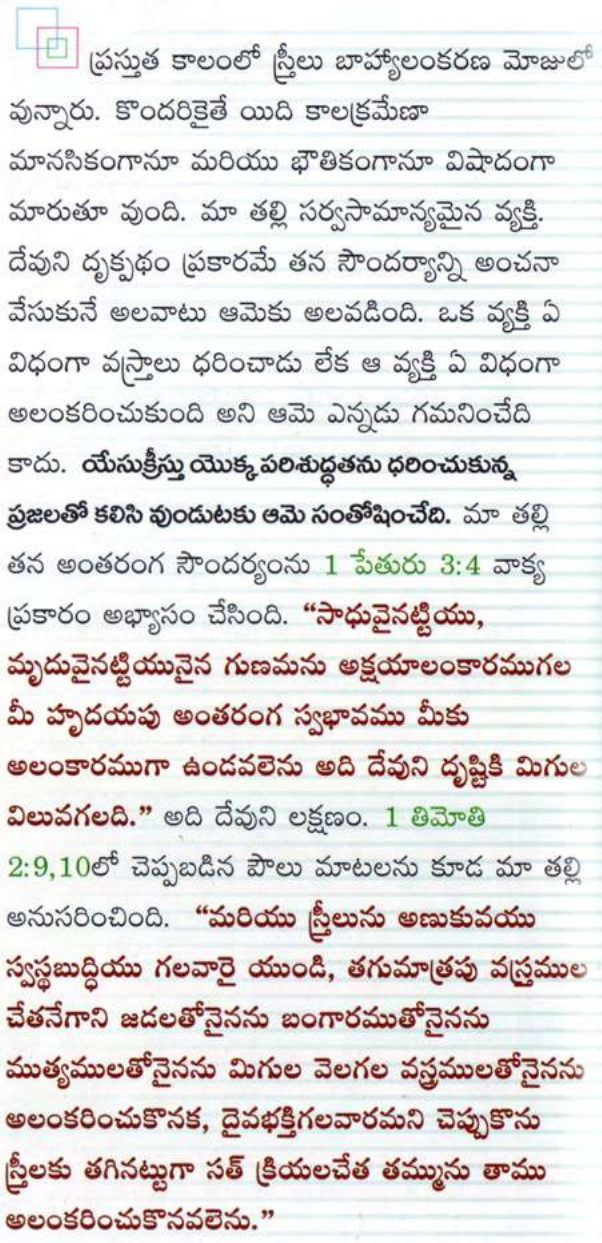 ప్రస్తుత కాలంలో స్త్రీలు బాహ్యాలంకరణ మోజులో
వున్నారు. కొందరికైతే యిది కాలక్రమేణా
మానసికంగానూ మరియు భౌతికంగానూ విషాదంగా
మారుతూ వుంది. మా తల్లి సర్వసామాన్యమైన వ్యక్తి.
దేవుని దృక్పథం ప్రకారమే తన సౌందర్యాన్ని అంచనా
వేసుకునే అలవాటు ఆమెకు అలవడింది. ఒక వ్యక్తి ఏ
విధంగా వస్త్రాలు ధరించాడు లేక ఆ వ్యక్తి ఏ విధంగా
అలంకరించుకుంది అని ఆమె ఎన్నడు గమనించేది
కాదు. యేసుక్రీస్తు యొక్క పరిశుద్ధతను ధరించుకున్న
ప్రజలతో కలిసి వుండుటకు ఆమె సంతోషించేది. మా తల్లి
తన అంతరంగ సౌందర్యంను 1 పేతురు 3:4 వాక్య
ప్రకారం అభ్యాసం చేసింది. “సాధువైనట్టియు,
మృదువైనట్టియునైన గుణమను అక్షయాలంకారముగల
మీ హృదయపు అంతరంగ స్వభావము మీకు
అలంకారముగా ఉండవలెను అది దేవుని దృష్టికి మిగుల
విలువగలది.” అది దేవుని లక్షణం. 1 తిమోతి
2:9,10లో చెప్పబడిన పౌలు మాటలను కూడ మా తల్లి
అనుసరించింది. “మరియు స్త్రీలును అణుకువయు
స్వస్థబుద్ధియు గలవారై యుండి, తగుమాత్రపు వస్త్రముల
చేతనేగాని జడలతోనైనను బంగారముతోనైనను
ముత్యములతోనైనను మిగుల వెలగల వస్త్రములతోనైనను
అలంకరించుకొనక, దైవభక్తిగలవారమని చెప్పుకొను
స్త్రీలకు తగినట్టుగా సత్ క్రియలచేత తమ్మును తాము
అలంకరించుకొనవలెను.”